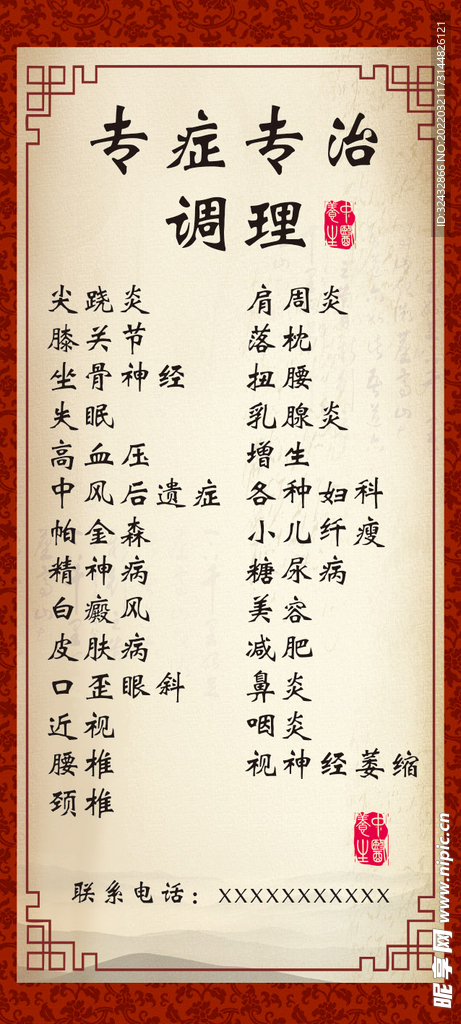 专症专治
调理
中醫養生
尖跷炎
膝关节
坐骨神经
失眠
高血压
中风后遗症
帕金森
精神病
白癜风
皮肤病
口歪眼斜
近视
腰椎
颈椎
肩周炎
落枕
扭腰
乳腺炎
增生
各种妇科
小儿纤瘦
糖尿病
美容
减肥
鼻炎
咽炎
视神经萎缩
中醫養生
联系电话：XXXXXXXXXXX
ID:32432866 NO:20220321173144826121
昵享网 www.nipic.cn